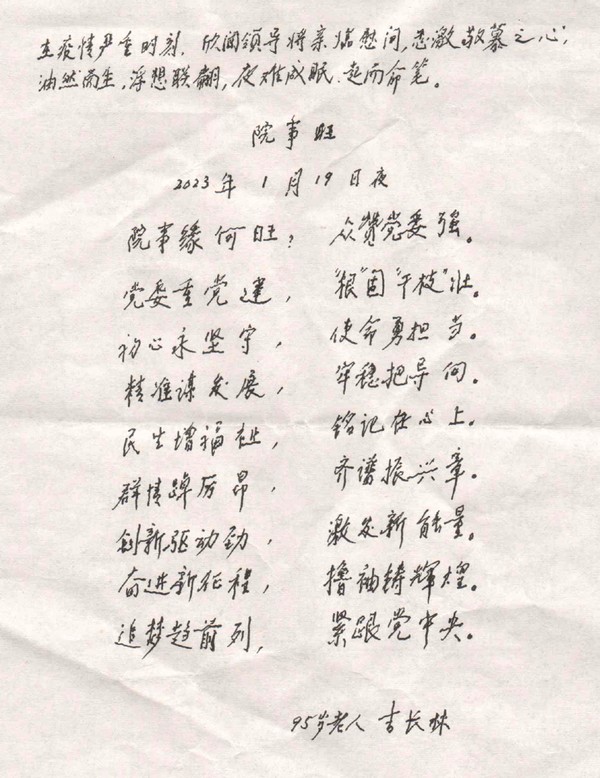 在疫情严重时刻，欣闻领导将亲临慰问，感激敬慕之心，
油然而生，浮想联翩，夜难成眠，起而命笔。
院事旺
2023年1月19日夜
院事缘何旺？ 众赞党委强。
党委重党建， “根”固“干枝”壮。
初心永坚守， 使命勇担当。
精准谋发展， 牢稳把导向。
民生增福祉， 铭记在心上。
群情踔厉昂， 齐谱振兴章。
创新驱动劲， 激发新能量。
奋进新征程， 撸袖铸辉煌。
追梦趋前列， 紧跟党中央。
95岁老人 吉长林